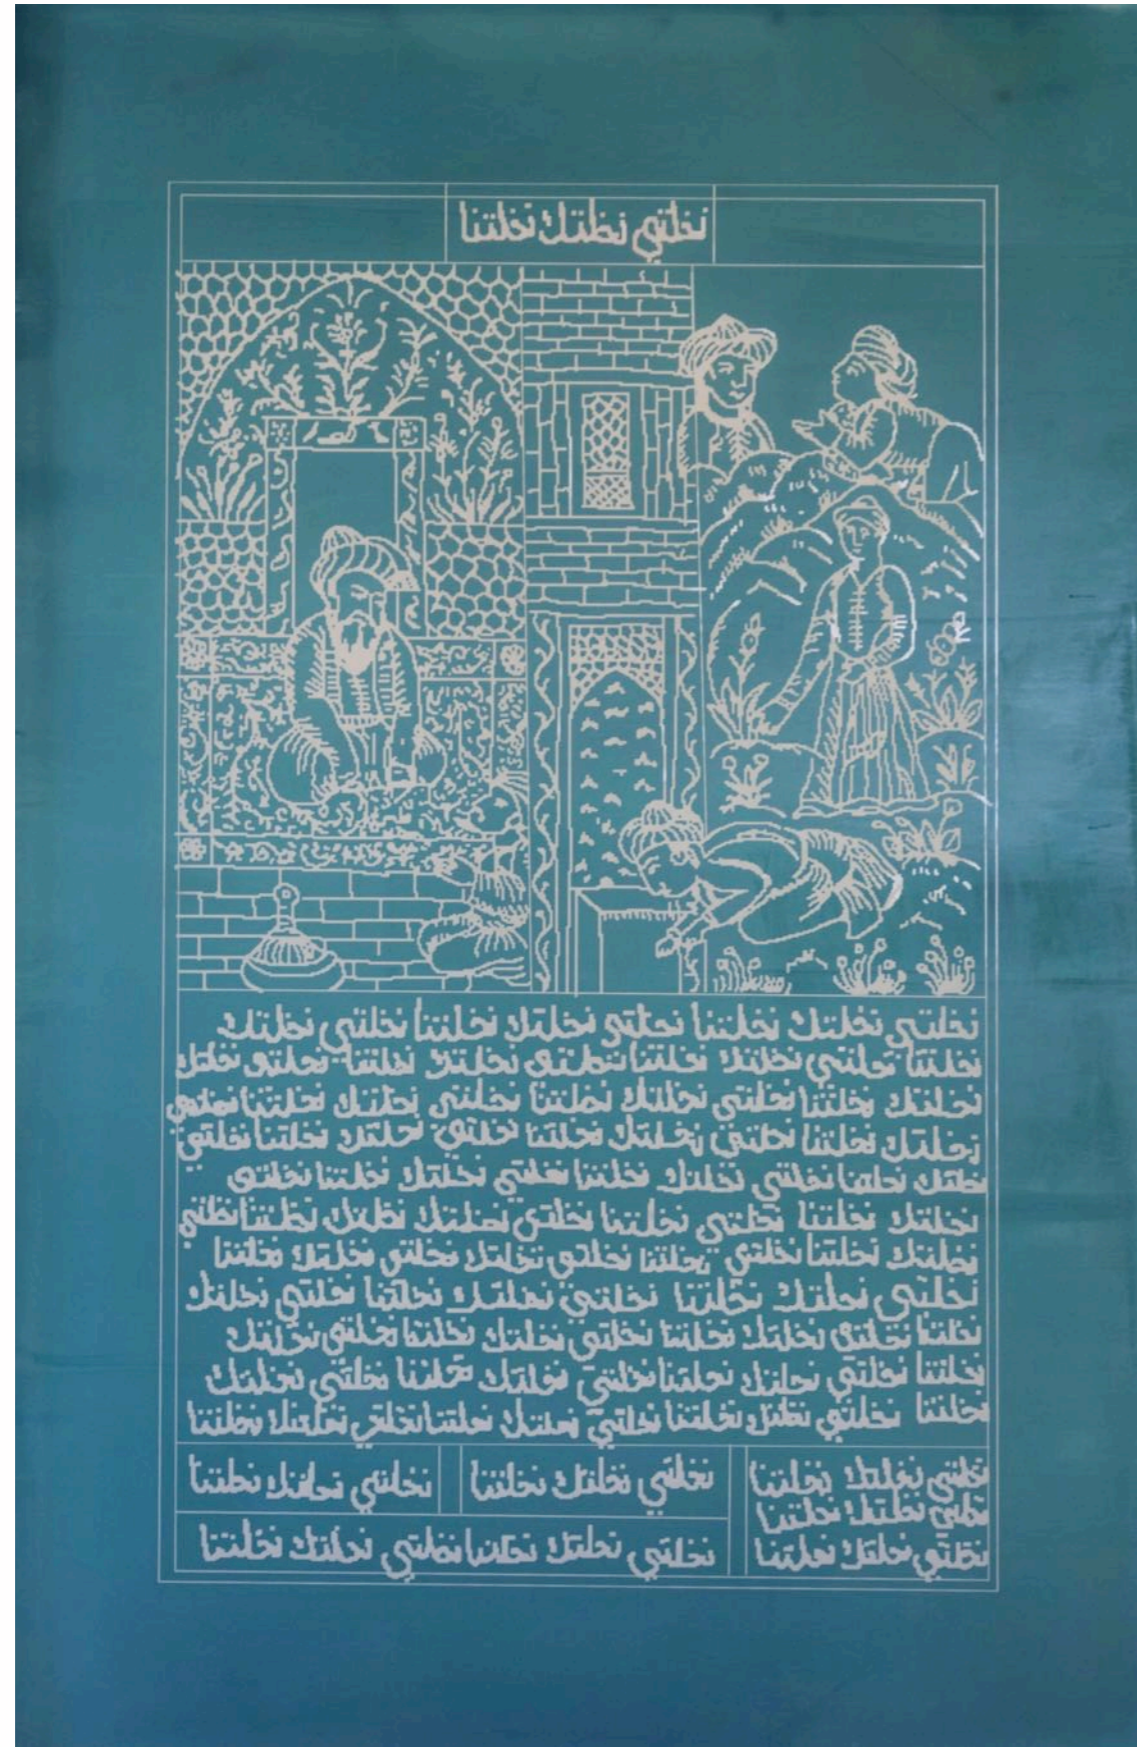 نخلتي نخلتك نخلتنا
نخلتي نخلتك نخلتنا نخلتي نخلتك نخلتنا نخلتي نخلتك
نخلتنا نخلتي نخلتك نخلتنا نخلتي نخلتك نخلتنا نخلتي نخلتك
نخلتك نخلتنا نخلتي نخلتك نخلتنا نخلتي نخلتك نخلتنا نخلتي
نخلتك نخلتنا نخلتي نخلتك نخلتنا نخلتي نخلتك نخلتنا نخلتي
نخلتك نخلتنا نخلتي نخلتك نخلتنا نخلتي نخلتك نخلتنا نخلتي
نخلتك نخلتنا نخلتي نخلتنا نخلتي نخلتك نخلتك نخلتنا نخلتي
نخلتك نخلتنا نخلتي نخلتنا نخلتي نخلتك نخلتي نخلتك نخلتنا
نخلتي نخلتك نخلتنا نخلتي نخلتك نخلتنا نخلتي نخلتك
نخلتنا نخلتي نخلتك نخلتنا نخلتي نخلتك نخلتنا نخلتي نخلتك
نخلتنا نخلتي نخلتك نخلتنا نخلتي نخلتك نخلتنا نخلتي نخلتك
نخلتنا نخلتي نخلتك نخلتنا نخلتي نخلتك نخلتنا نخلتي نخلتك نخلتنا
نخلتي نخلتك نخلتنا
نخلتي نخلتك نخلتنا
نخلتي نخلتك نخلتنا
نخلتي نخلتك نخلتنا
نخلتي نخلتك نخلتنا
نخلتي نخلتك نخلتنا نخلتي نخلتك نخلتنا